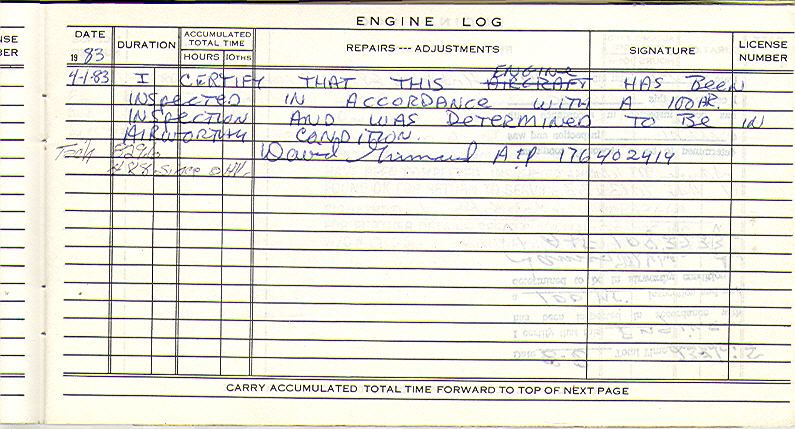 ENGINE LOG
DATE
1983
DURATION
ACCUMULATED
TOTAL TIME
HOURS 10THS
REPAIRS --- ADJUSTMENTS
SIGNATURE
LICENSE
NUMBER
SE
BER
ENGINE
4-1-83 I CERTIFY THAT THIS AIRCRAFT HAS BEEN
INSPECTED IN ACCORDANCE WITH A 100 HR.
INSPECTION AND WAS DETERMINED TO BE IN
AIRWORTHY CONDITION.
Tach David A&P 176402414
488 - Since OHL
CARRY ACCUMULATED TOTAL TIME FORWARD TO TOP OF NEXT PAGE